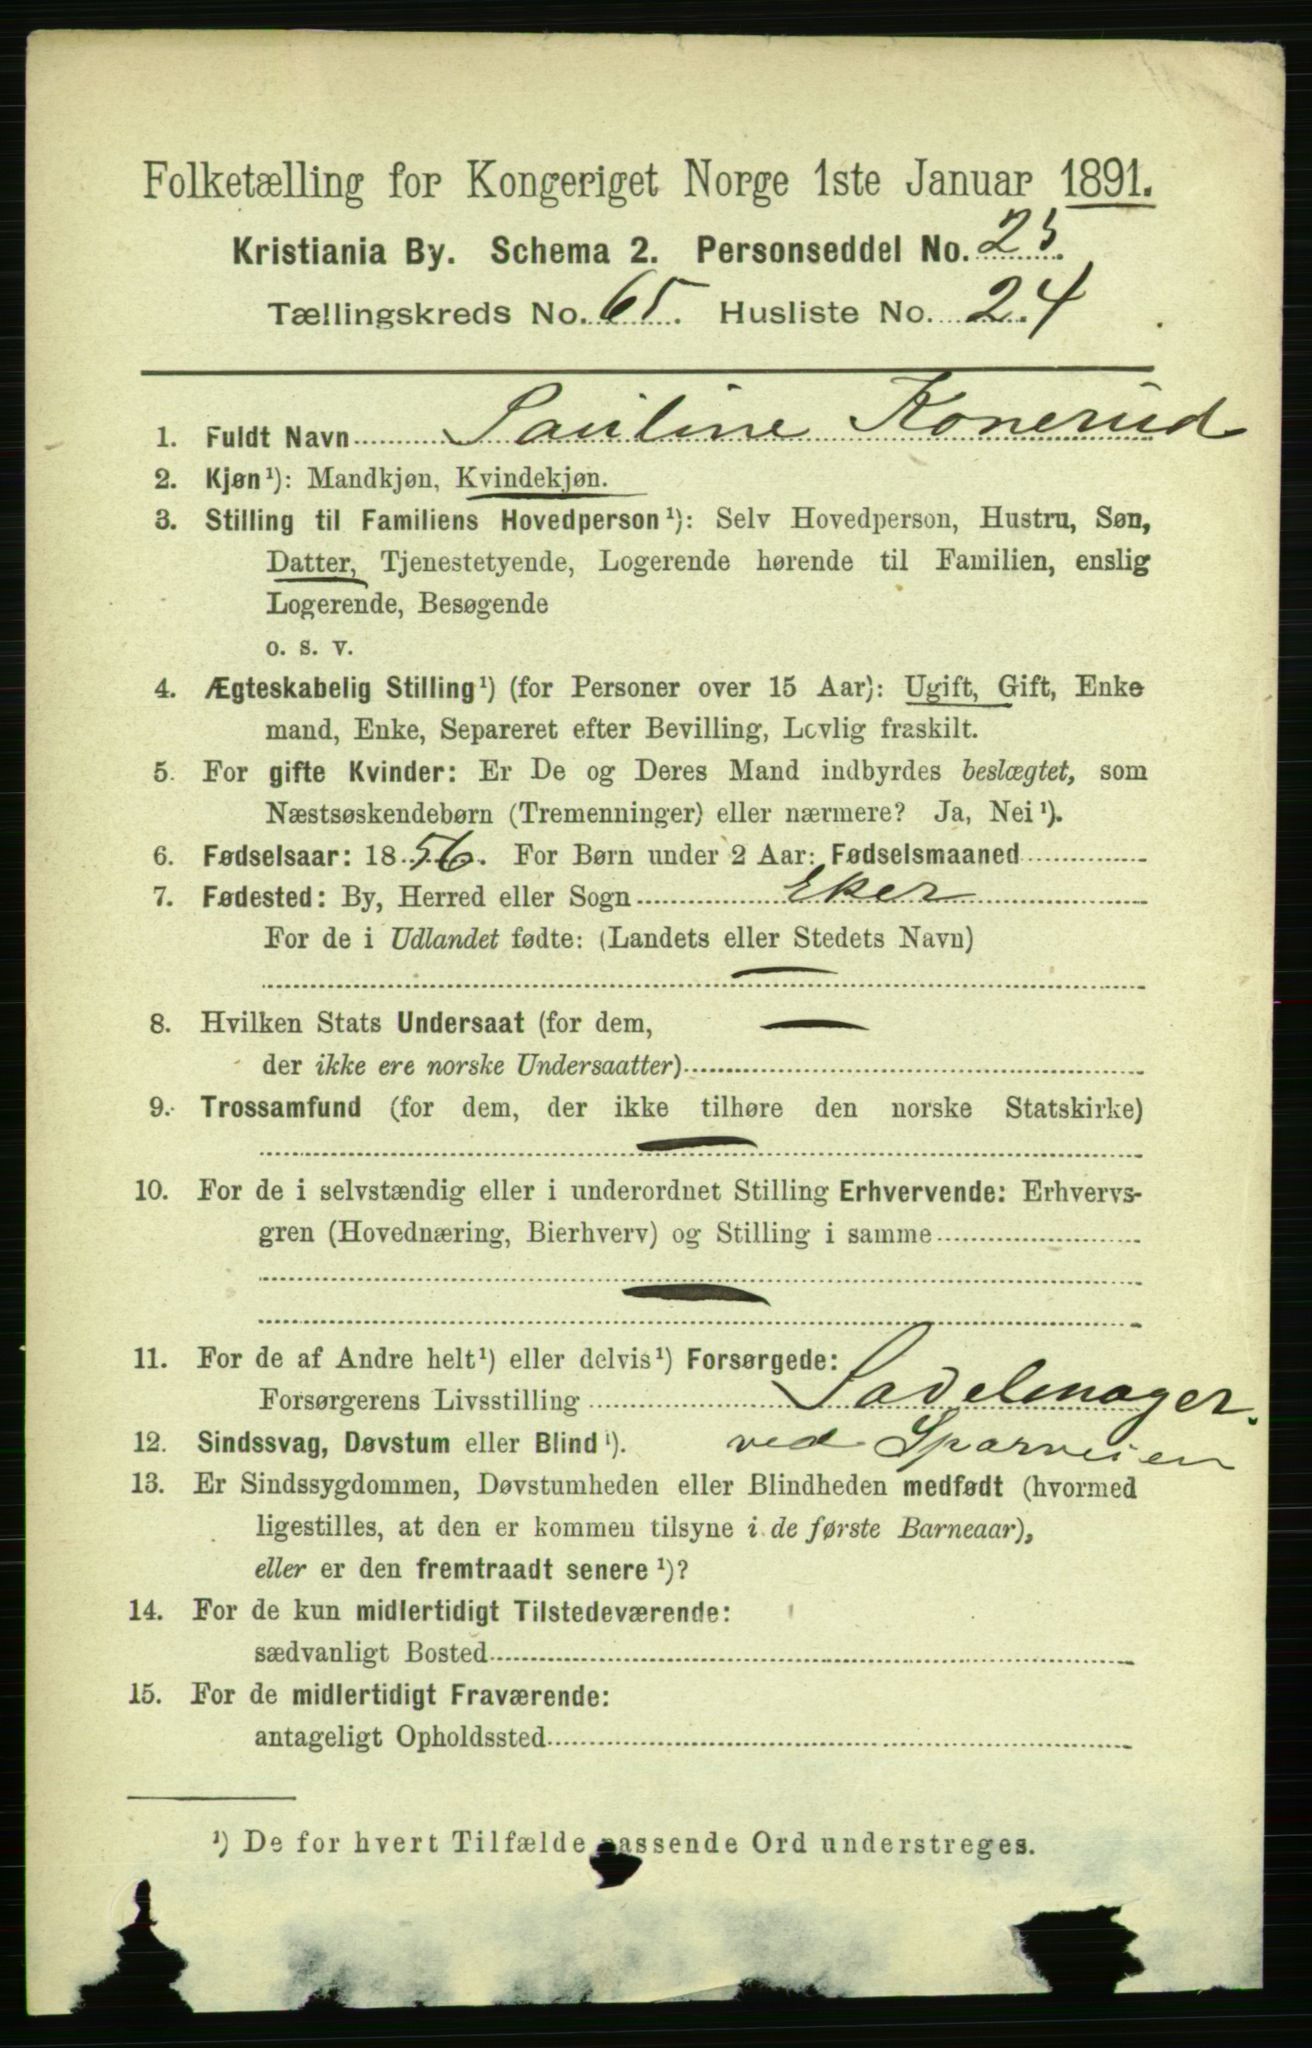 Folketælling for Kongeriget Norge 1ste Januar 1891.
Kristiania By. Schema 2. Personseddel No. 25.
Tællingskreds No. 65. Husliste No. 24
1. Fuldt Navn Pauline Konerud
2. Kjøn¹): Mandkjøn, Kvindekjøn.
3. Stilling til Familiens Hovedperson¹): Selv Hovedperson, Hustru, Søn,
Datter, Tjenestetyende, Logerende hørende til Familien, enslig
Logerende, Besøgende
o. s. v.
4. Ægteskabelig Stilling¹) (for Personer over 15 Aar): Ugift, Gift, Enke
mand, Enke, Separeret efter Bevilling, Lovlig fraskilt.
5. For gifte Kvinder: Er De og Deres Mand indbyrdes beslægtet, som
Næstsøskendebørn (Tremenninger) eller nærmere? Ja, Nei¹).
6. Fødselsaar: 1856. For Børn under 2 Aar: Fødselsmaaned
7. Fødested: By, Herred eller Sogn Eker
For de i Udlandet fødte: (Landets eller Stedets Navn)
8. Hvilken Stats Undersaat (for dem,
der ikke ere norske Undersaatter)
9. Trossamfund (for dem, der ikke tilhøre den norske Statskirke)
10. For de i selvstændig eller i underordnet Stilling Erhvervende: Erhvervs-
gren (Hovednæring, Bierhverv) og Stilling i samme
11. For de af Andre helt¹) eller delvis¹) Forsørgede:
Forsørgerens Livsstilling Sadelmager.
12. Sindssvag, Døvstum eller Blind¹). ved Sporveien
13. Er Sindssygdommen, Døvstumheden eller Blindheden medfødt (hvormed
ligestilles, at den er kommen tilsyne i de første Barneaar),
eller er den fremtraadt senere¹)?
14. For de kun midlertidigt Tilstedeværende:
sædvanligt Bosted
15. For de midlertidigt Fraværende:
antageligt Opholdssted
¹) De for hvert Tilfælde passende Ord understreges.